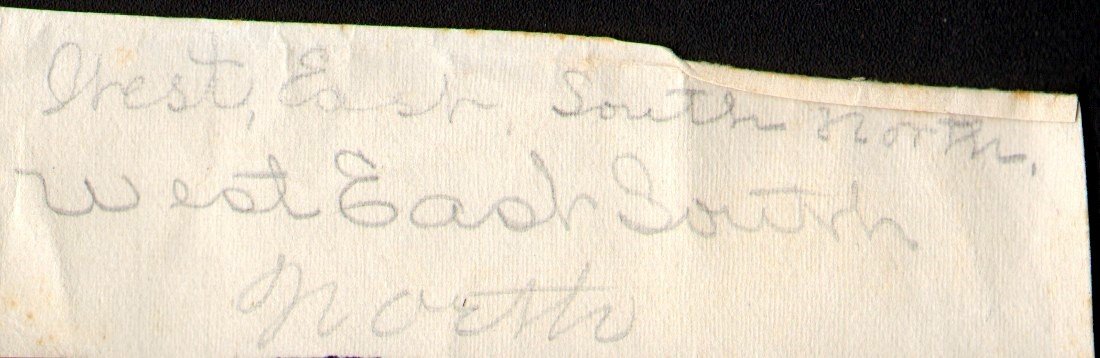 West, East, South North.
West East South
North